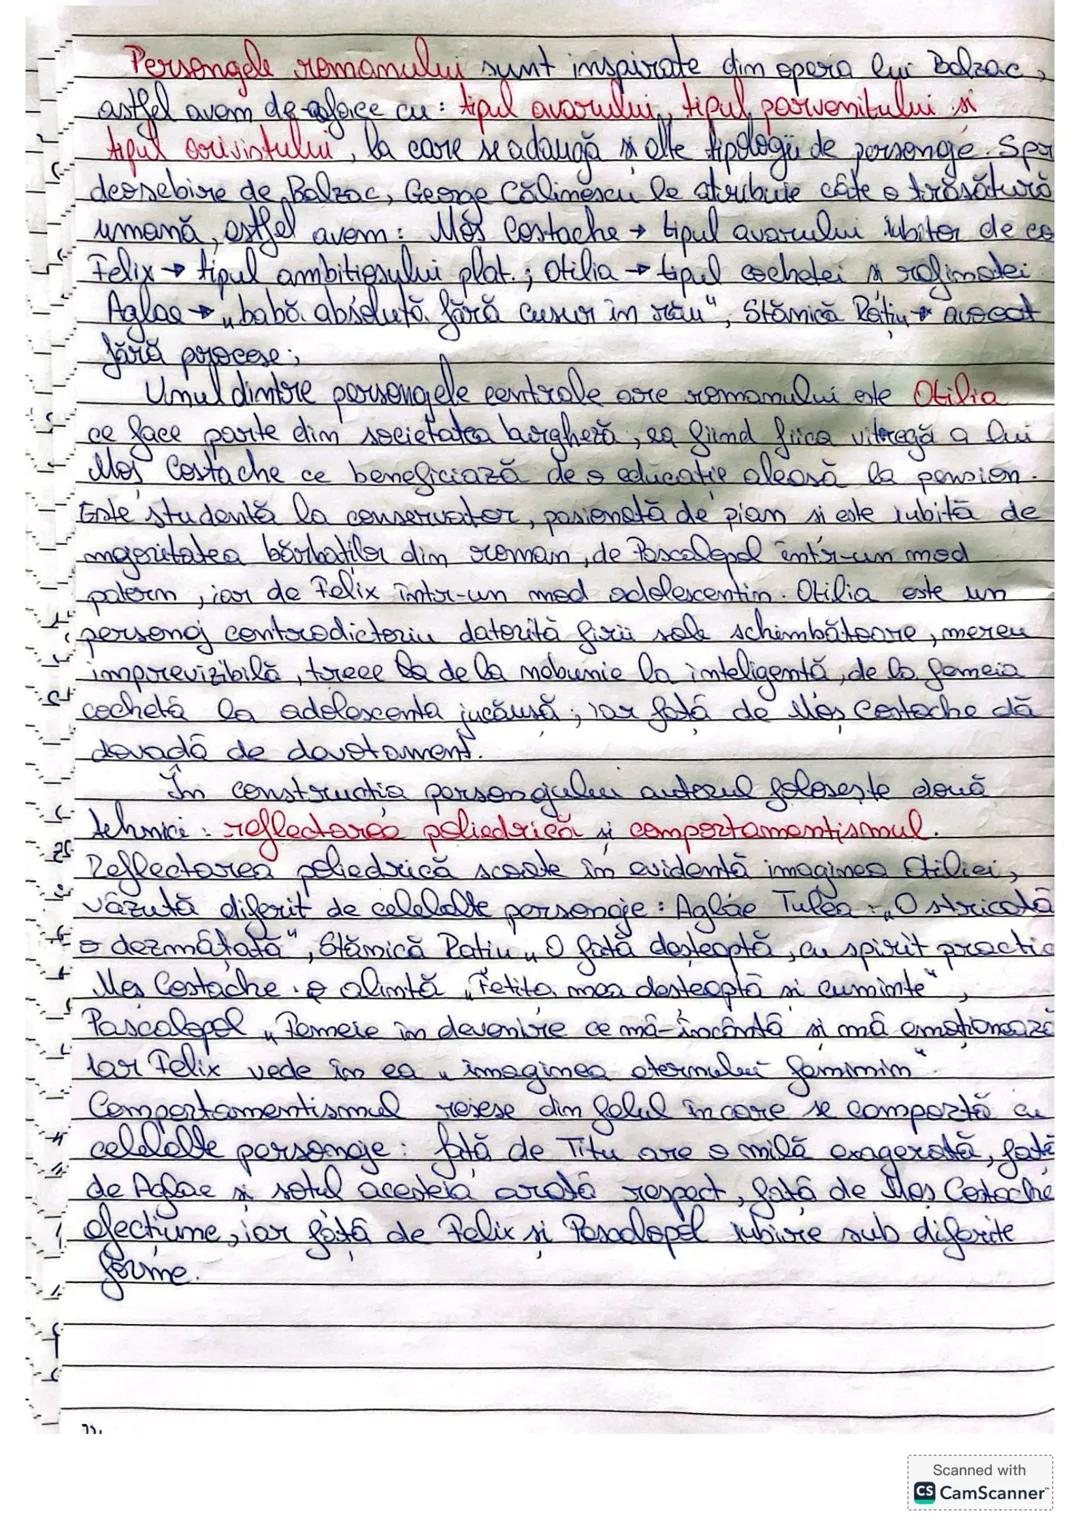 Personagele romanului sunt inspirate din opera lui Balzac,
astfel avem de-aface cu: tipul avarului, tipul parvenitului și
tipul arivistului, la care se adaugă și alte tipologii de personaje. Spr
deosebire de Balzac, George Călinescu le atribuie câte o trăsătură
umană, astfel avem: Moș Costache → tipul avarului iubitor de co
Felix → tipul ambițiosului plat.; Otilia → tipul cochetei și rafinatei
Aglae → „babă absolută fără cusur în rău", Stănică Rațiu → avocat
fără procese;
Unul dintre personagele centrale are romanului este Otilia
ce face parte din societatea burgheză, ea fiind fiica vitregă a lui
Moș Costache ce beneficiază de o educație aleasă la pension.
Este studentă la conservator, pasionată de pian și este iubită de
majoritatea bărbaților din roman, de Pascalopol într-un mod
patern, iar de Felix într-un mod adolescentin. Otilia este un
personaj contradictoriu datorită firii sale schimbătoare, mereu
imprevizibilă, trece de la nebunie la inteligență, de la femeia
cochetă la adolescenta jucăușă; iar față de Moș Costache dă
dovadă de devotament.
În construcția personajului autorul folosește două
tehnici: reflectarea poliedrică și comportamentismul.
Reflectarea poliedrică scoate în evidență imaginea Otiliei,
văzută diferit de celelalte personaje: Aglae Tulea - „O stricată
o dezmățată", Stănică Rațiu „O fată deșteaptă, cu spirit practic
Moș Costache o alintă „Fetița mea deșteaptă și cuminte",
Pascalopol „Femeie în devenire ce mă-încântă și mă emoționează
iar Felix vede în ea „imaginea eternului feminin"
Comportamentismul reiese din felul în care se comportă cu
celelalte personaje: față de Titu are o milă exagerată, față
de Aglae și soțul acesteia arată respect, față de Moș Costache
afecțiune, iar față de Felix și Pascalopol iubire sub diferite
forme.
Scanned with
CS CamScanner